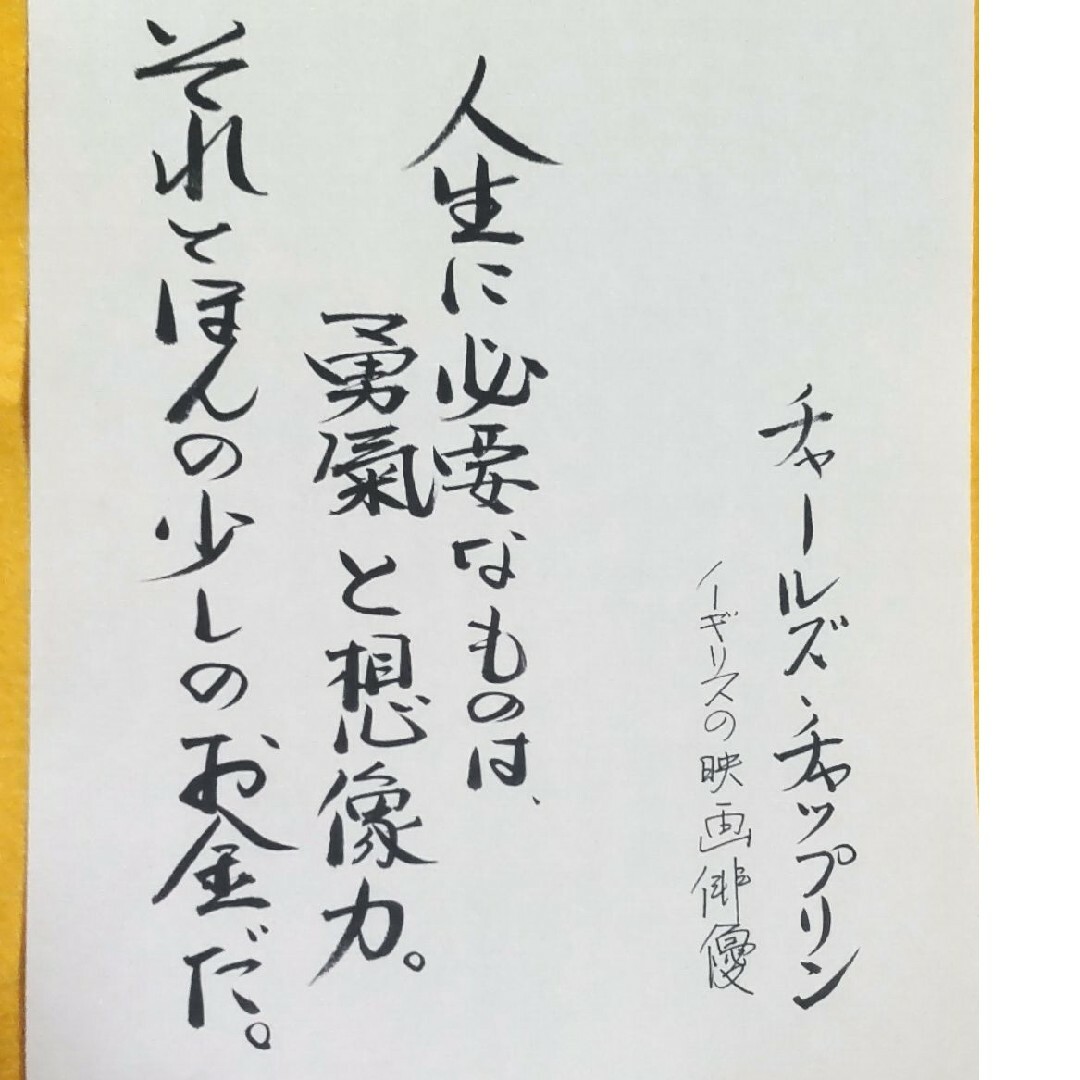 チャールズ・チャップリン
イギリスの映画俳優
人生に必要なものは、
勇氣と想像力。
それとほんの少しのお金だ。